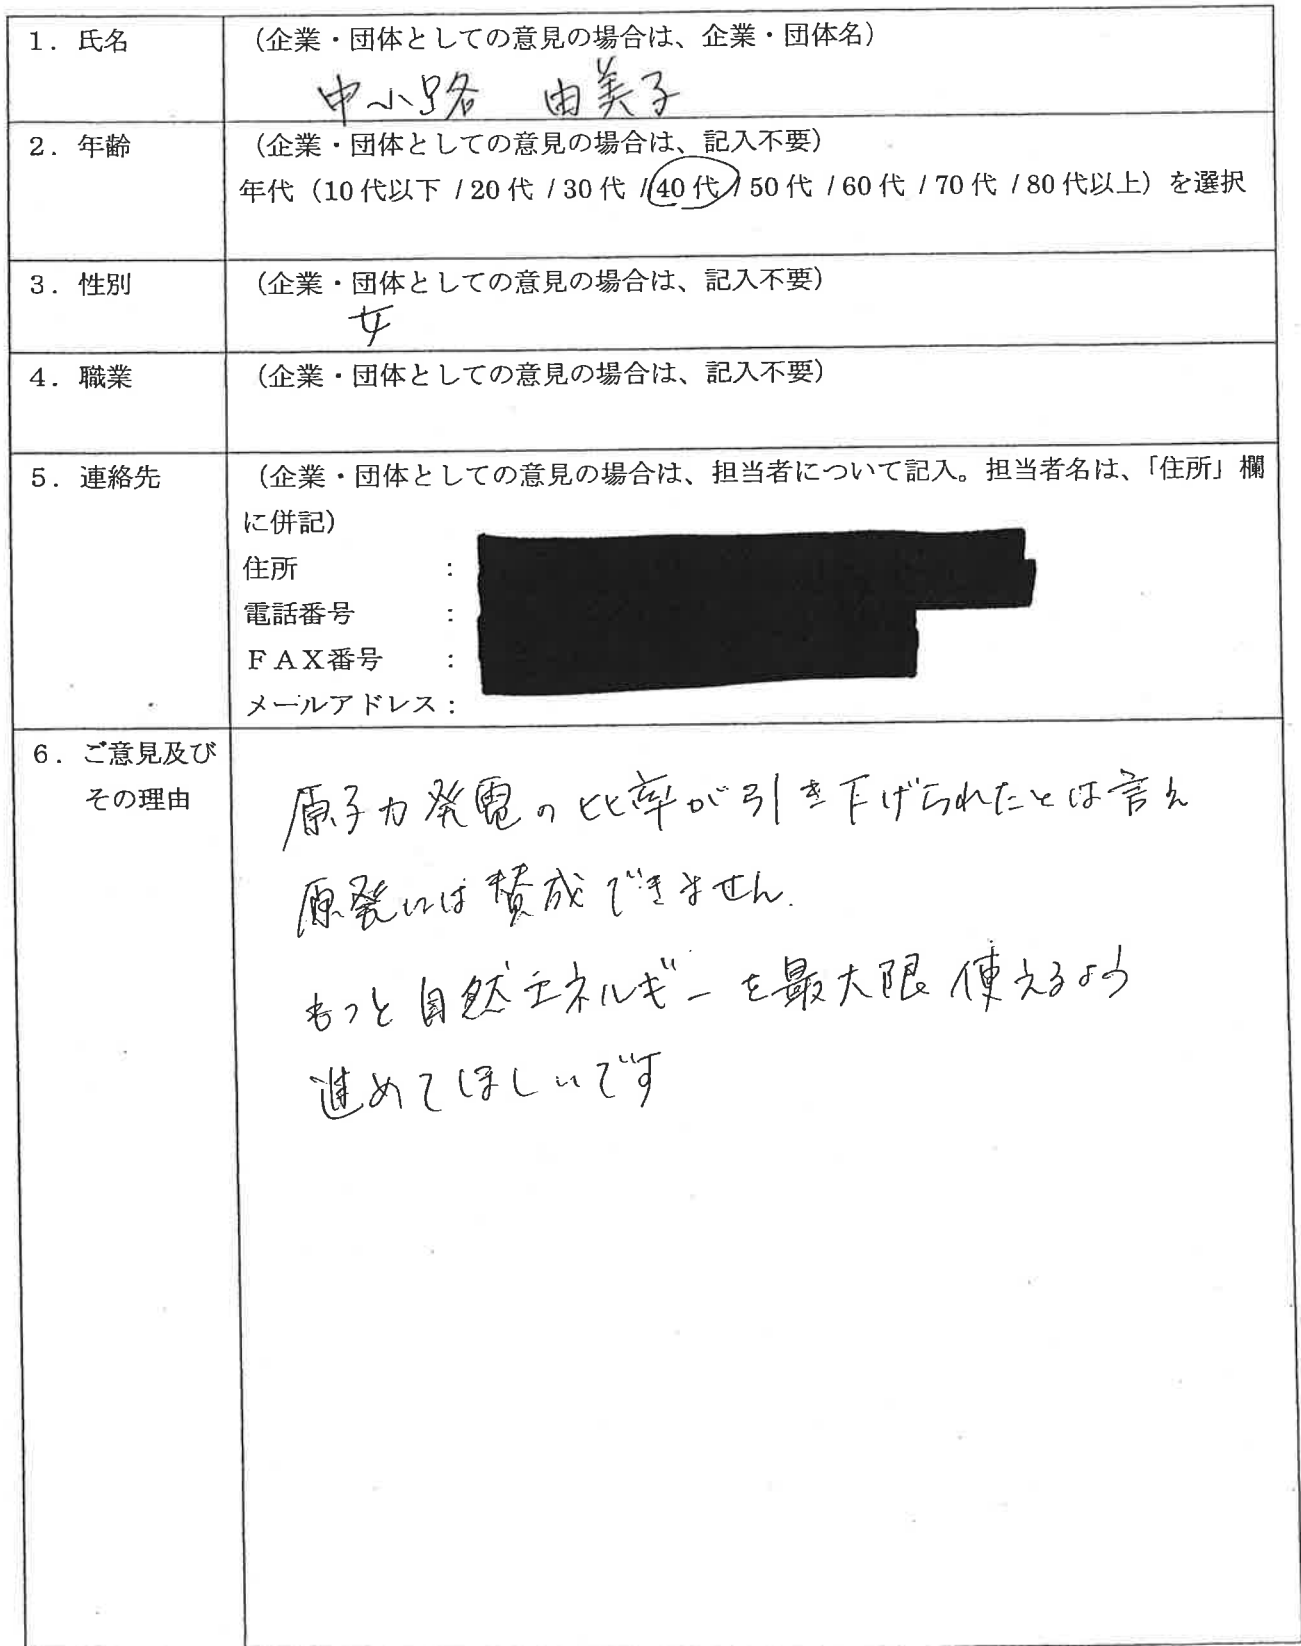 1．氏名
（企業・団体としての意見の場合は、企業・団体名）
中小路 由美子
2．年齢
（企業・団体としての意見の場合は、記入不要）
年代（10代以下 / 20代 / 30代 / 40代 / 50代 / 60代 / 70代 / 80代以上）を選択
3．性別
（企業・団体としての意見の場合は、記入不要）
女
4．職業
（企業・団体としての意見の場合は、記入不要）
5．連絡先
（企業・団体としての意見の場合は、担当者について記入。担当者名は、「住所」欄
に併記）
住所 ：
電話番号 ：
ＦＡＸ番号 ：
メールアドレス：
6．ご意見及び
その理由
原子力発電の比率が引き下げられたとは言え
原発には賛成できません.
もっと自然エネルギーを最大限使えるよう
進めてほしいです